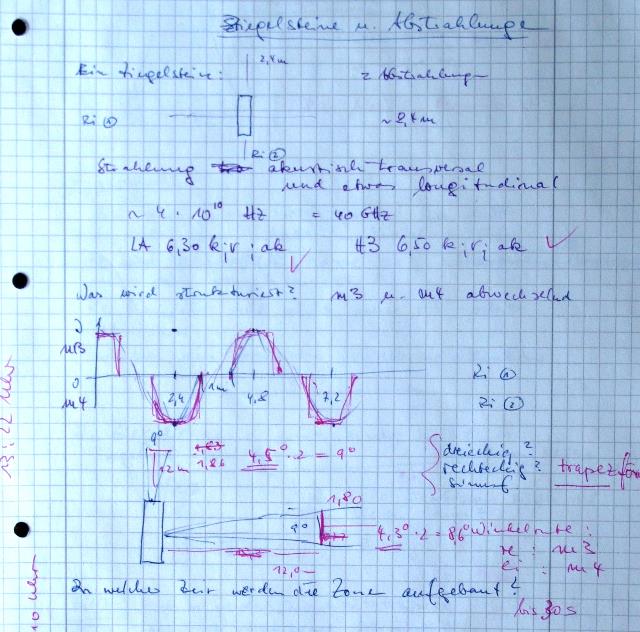 Ziegelsteine u. Abstrahlungen
Ein Ziegelstein:
2,4 m
2 Abstrahlungen
Ri ①
~ 2,4 m
Ri ②
Strahlung akustisch transversal
und etwas longitudinal
~ 4 · 10¹⁰ Hz = 40 GHz
LA 6,30 k; r; ak H3 6,50 k; r; ak
Was wird strukturiert? m3 u. m4 abwechselnd
m3
0
m4
2,4
1m
4,8
7,2
Ri ①
Ri ②
9°
12m
1,86
4,5° · 2 = 9°
dreieckig?
rechteckig?
trapezför
1,80
9°
4,3° · 2 = 8,6°
Winkelrute:
re : m3
li : m4
12,0
In welcher Zeit werden die Zonen aufgebaut?
bis 30 s
13:22 Uhr
10 Uhr